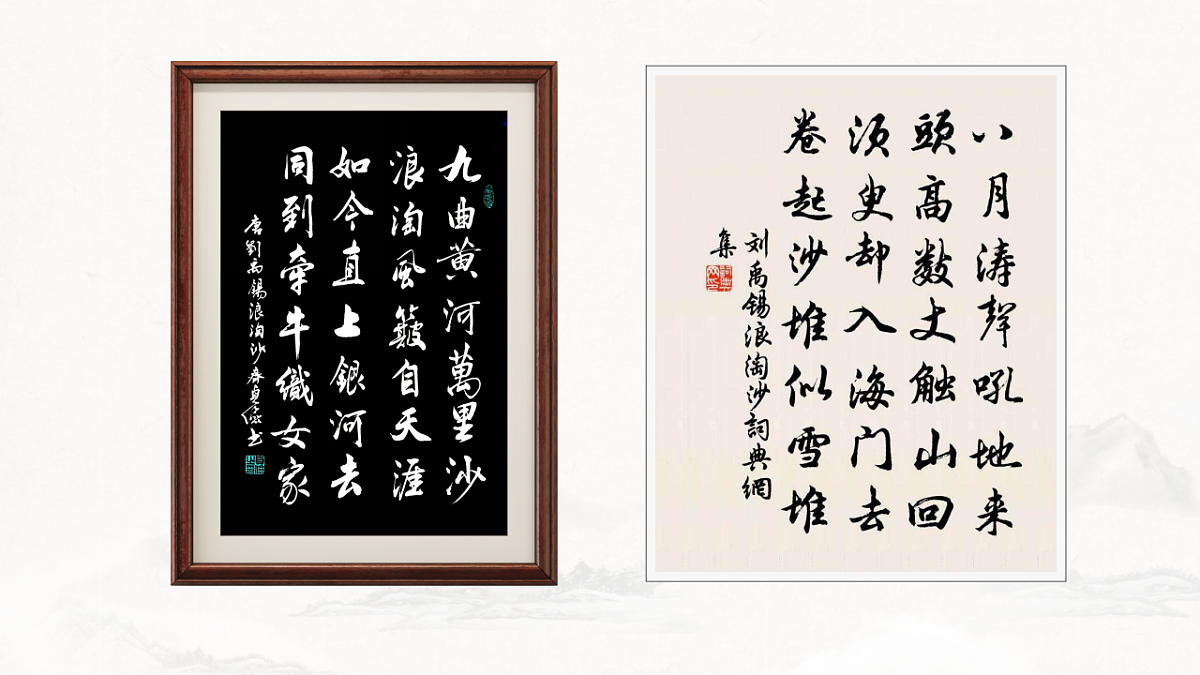 九曲黄河萬里沙
浪淘風簸自天涯
如今直上銀河去
同到牽牛織女家
唐劉禹錫浪淘沙春貞
八月涛聲吼地来
頭高数丈触山回
須臾却入海门去
卷起沙堆似雪堆
刘禹锡浪淘沙詞典網
集